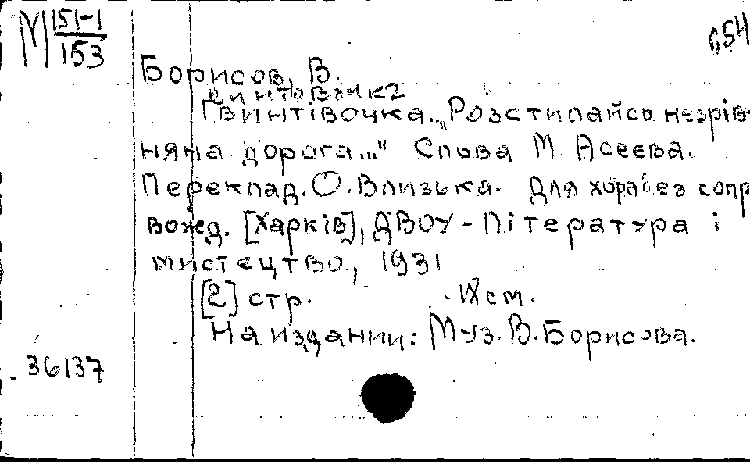 М 151-1
153
654
Борисов, В.
Гвинтівочка. „Розстилайся незрів-
няна дорога..." Слова М. Асеева.
Переклад. О. Влизька. Для хора без сопр
вожд. [Харків], ДВОУ - Література і
мистецтво, 1931
[2] стр. см.
На издании: Муз. В. Борисова.
36137